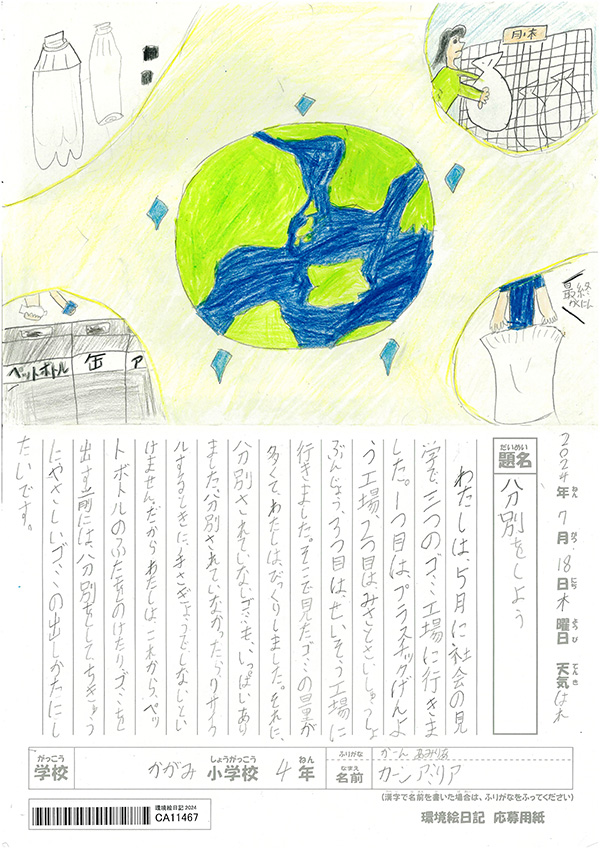 月・木
最終
かくにん
ペットボトル
缶
ア
2024年7月18日木曜日 天気はれ
ねん がつ にち ようび てんき
だいめい
題名
分別をしよう
わたしは、5月に社会の見
学で、三つのゴミ工場に行きま
した。1つ目は、プラスチックげんよ
う工場、2つ目はみさとさいしゅうしょ
ぶんじょう、3つ目は、せいそう工場に
行きました。そこで見たゴミの量が
多くて、わたしは、びっくりしました。それに、
分別されていないゴミも、いっぱいあり
ました。分別されていなかったらリサイク
ルするときに、手さぎょうでしないとい
けません。だからわたしは、これから、ペッ
トボトルのふたをのけたり、ゴミを
出す前には、分別をしてちきゅう
にやさしいゴミの出しかたにし
たいです。
がっこう
学校
かがみ
しょうがっこう
小学校
4
ねん
年
ふりがな
かーん あみりあ
なまえ
名前
カーン アミリア
(漢字で名前を書いた場合は、ふりがなをふってください)
環境絵日記2024
CA11467
環境絵日記 応募用紙